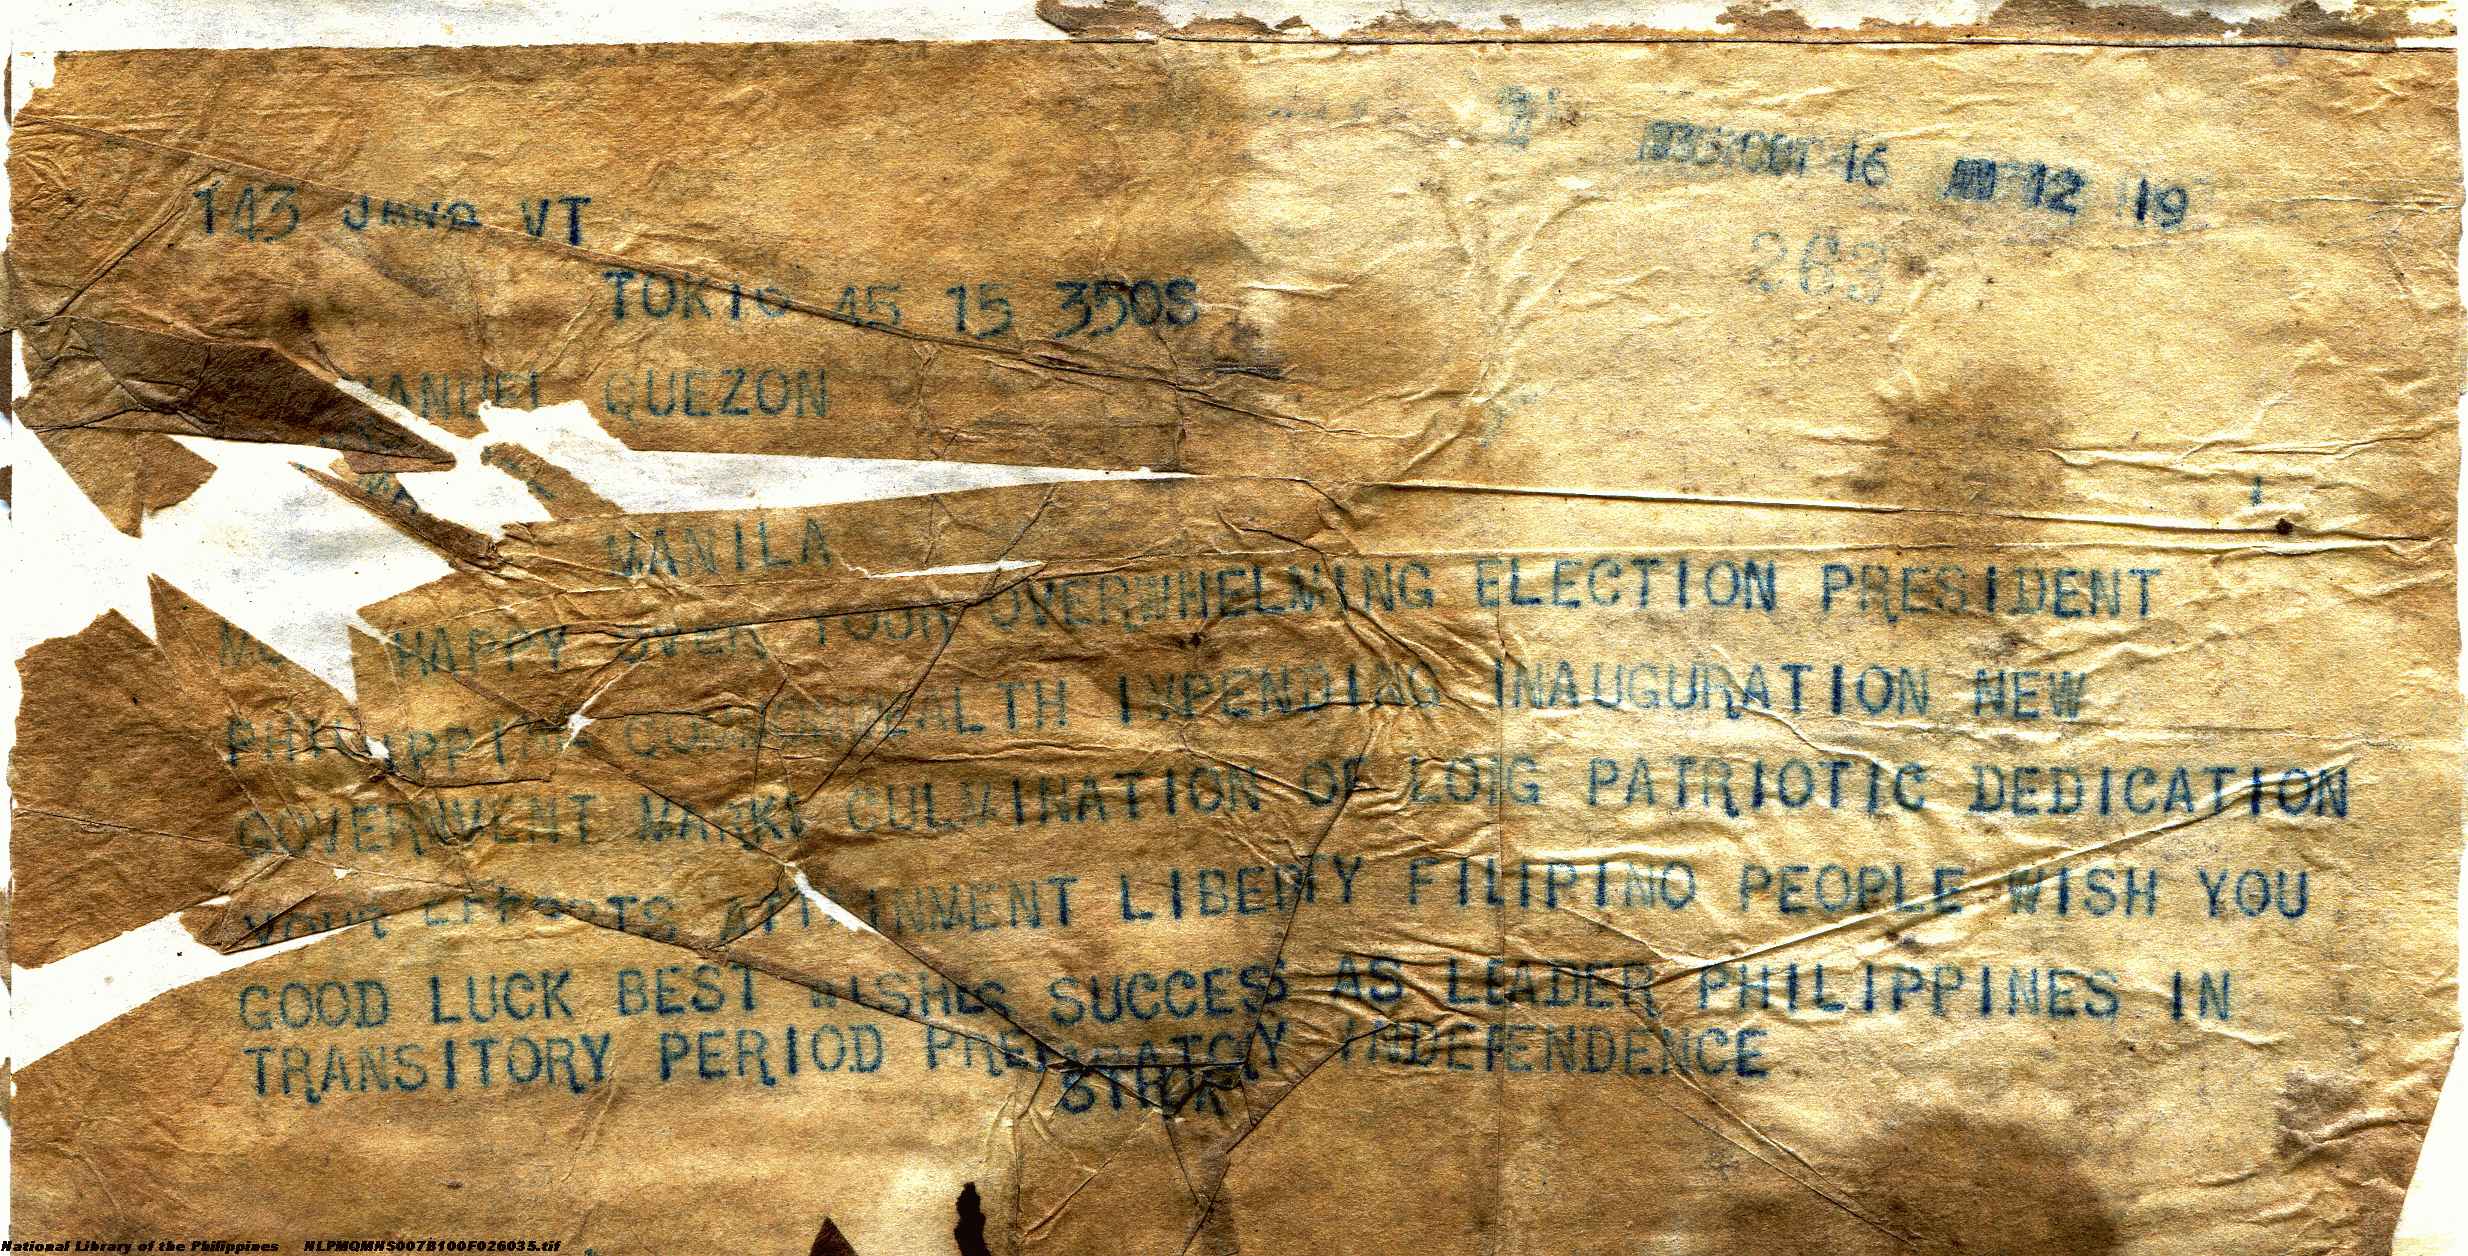 OCT 16 AM 12 19
263
143 JHNQ VT
TOKIO 45 15 350S
MANUEL QUEZON
MANILA
HAPPY OVER YOUR OVERWHELMING ELECTION PRESIDENT
PHILIPPINE COMMONWEALTH IMPENDING INAUGURATION NEW
GOVERNMENT MARKS CULMINATION OF LOIG PATRIOTIC DEDICATION
YOUR EFFORTS ATTAINMENT LIBERTY FILIPINO PEOPLE WISH YOU
GOOD LUCK BEST WISHES SUCCESS AS LEADER PHILIPPINES IN
TRANSITORY PERIOD PREPARATORY INDEPENDENCE
National Library of the Philippines NLPMQMNS007B100F026035.tif